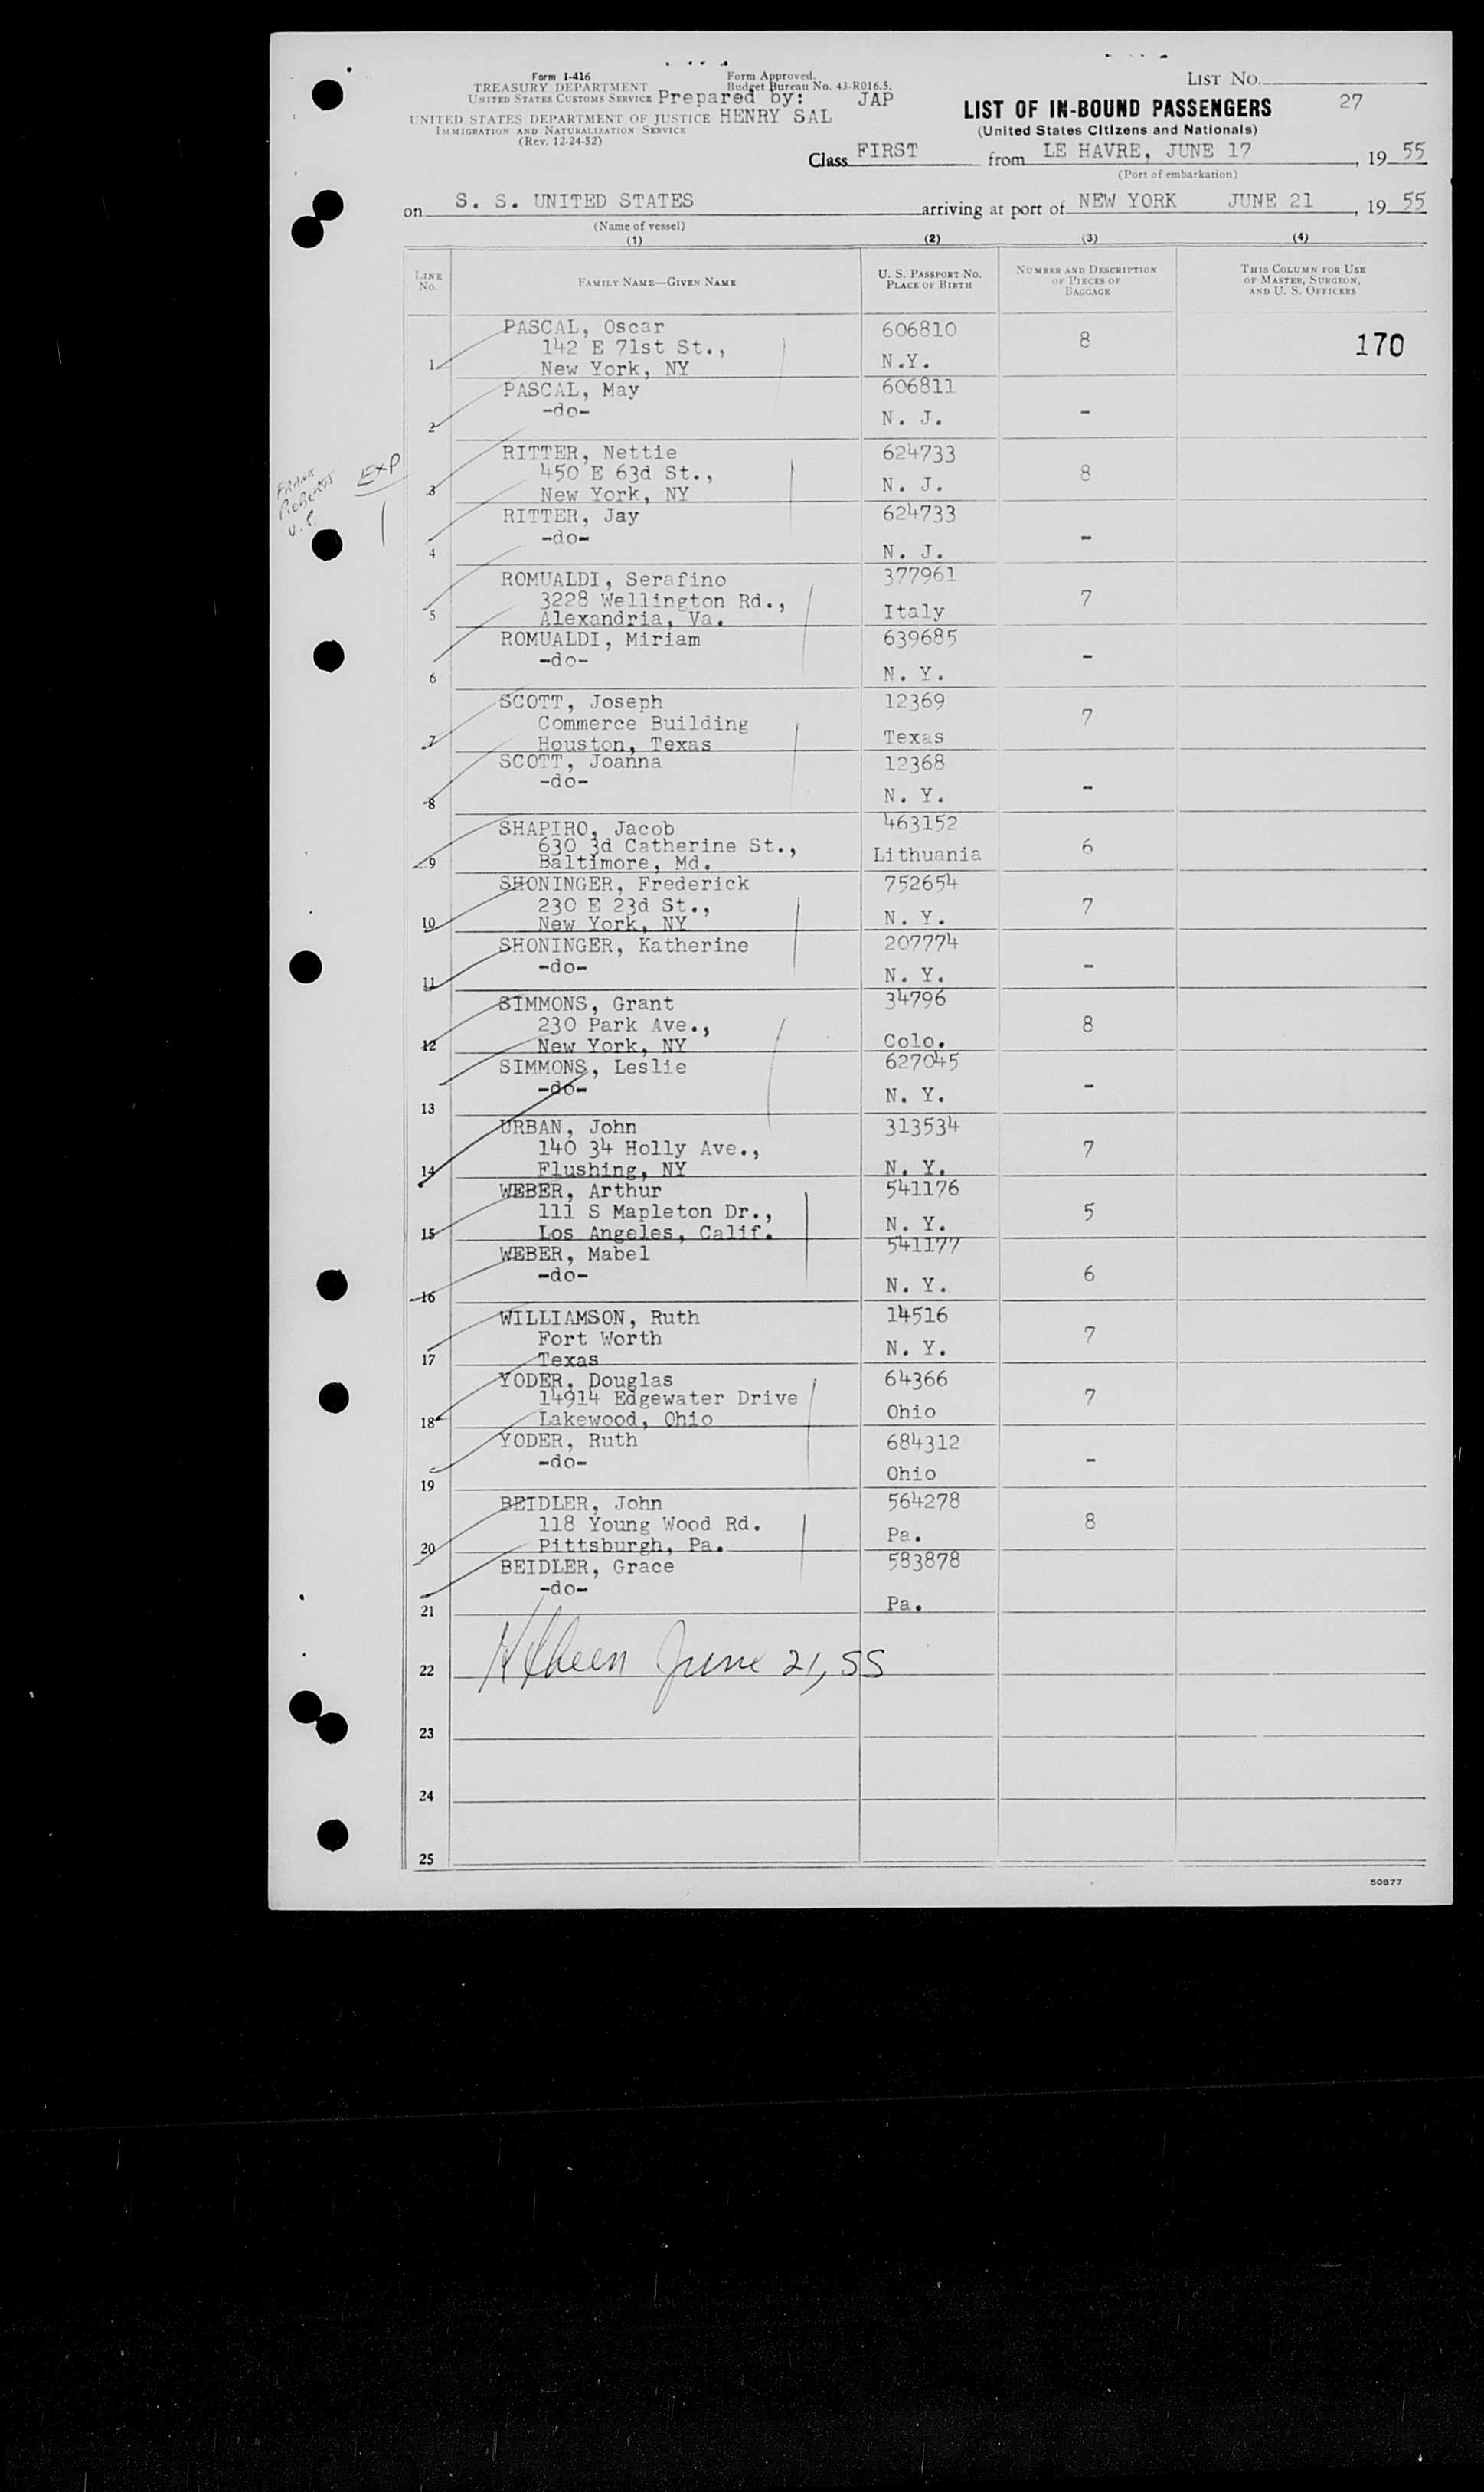 Form I-416
TREASURY DEPARTMENT
UNITED STATES CUSTOMS SERVICE
UNITED STATES DEPARTMENT OF JUSTICE
IMMIGRATION AND NATURALIZATION SERVICE
(Rev. 12-24-52)
Form Approved.
Budget Bureau No. 43-R016.5.
Prepared by: JAP
HENRY SAL
LIST NO.
27
LIST OF IN-BOUND PASSENGERS
(United States Citizens and Nationals)
Class FIRST from LE HAVRE, JUNE 17, 19 55
(Port of embarkation)
on S. S. UNITED STATES arriving at port of NEW YORK JUNE 21, 19 55
(Name of vessel)
(1) (2) (3) (4)
LINE NO. FAMILY NAME—GIVEN NAME U. S. PASSPORT NO. PLACE OF BIRTH NUMBER AND DESCRIPTION OF PIECES OF BAGGAGE THIS COLUMN FOR USE OF MASTER, SURGEON, AND U. S. OFFICERS
PASCAL, Oscar 606810
142 E 71st St., 8 170
1 New York, NY N.Y.
PASCAL, May 606811
-do- -
2 N. J.
RITTER, Nettie 624733
EXP 450 E 63d St., 8
3 New York, NY N. J.
RITTER, Jay 624733
-do- -
4 N. J.
ROMUALDI, Serafino 377961
3228 Wellington Rd., 7
5 Alexandria, Va. Italy
ROMUALDI, Miriam 639685
-do- -
6 N. Y.
SCOTT, Joseph 12369
Commerce Building 7
7 Houston, Texas Texas
SCOTT, Joanna 12368
-do- -
8 N. Y.
SHAPIRO, Jacob 463152
630 3d Catherine St., 6
9 Baltimore, Md. Lithuania
SHONINGER, Frederick 752654
230 E 23d St., 7
10 New York, NY N. Y.
SHONINGER, Katherine 207774
-do- -
11 N. Y.
SIMMONS, Grant 34796
230 Park Ave., 8
12 New York, NY Colo.
SIMMONS, Leslie 627045
-do- -
13 N. Y.
URBAN, John 313534
140 34 Holly Ave., 7
14 Flushing, NY N. Y.
WEBER, Arthur 541176
111 S Mapleton Dr., 5
15 Los Angeles, Calif. N. Y.
WEBER, Mabel 541177
-do- 6
16 N. Y.
WILLIAMSON, Ruth 14516
Fort Worth 7
17 Texas N. Y.
YODER, Douglas 64366
14914 Edgewater Drive 7
18 Lakewood, Ohio Ohio
YODER, Ruth 684312
-do- -
19 Ohio
BEIDLER, John 564278
118 Young Wood Rd. 8
20 Pittsburgh, Pa. Pa.
BEIDLER, Grace 583878
-do-
21 Pa.
22 June 21, 55
23
24
25
50877